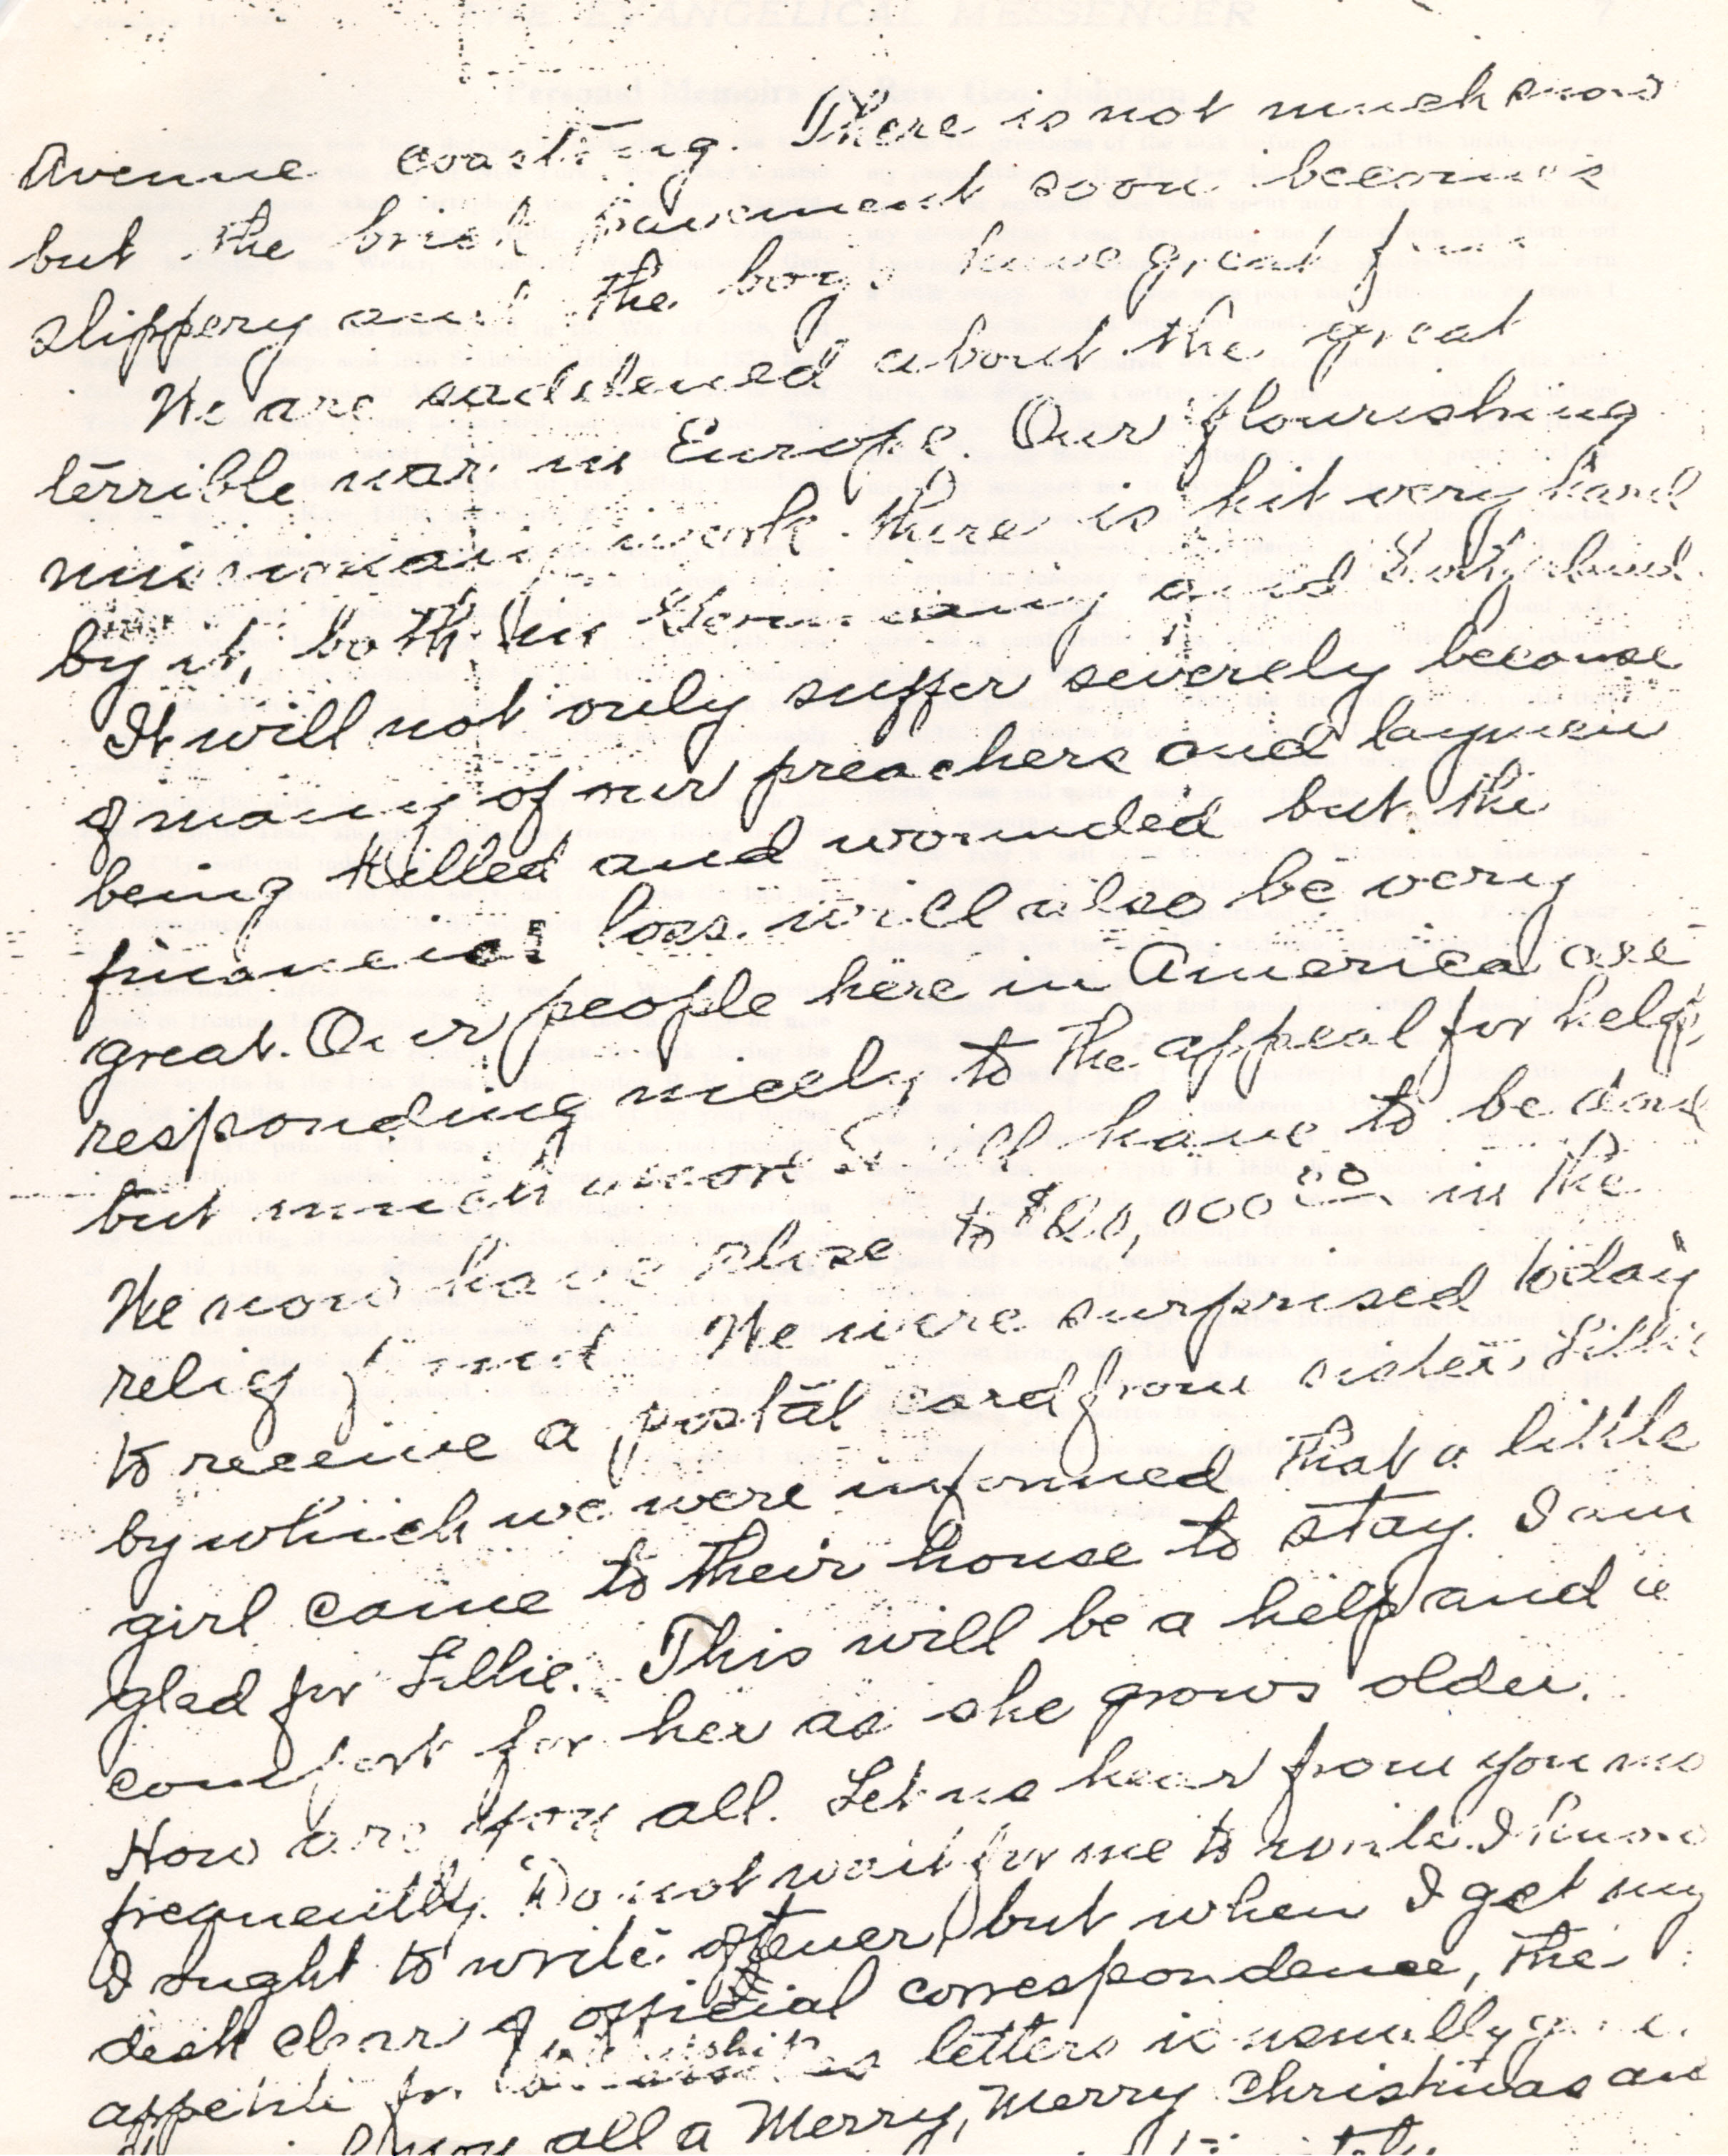 THE EVANGELICAL MESSENGER 7
Personal Memoirs of Rev. Geo. Johnson
Avenue coasting. There is not much snow
but the brick pavement soon becomes
slippery and the boys have great fun
We are saddened about the great
terrible war in Europe. Our flourishing
missionary work there is hit very hard
by it, both in Germany and Switzerland.
It will not only suffer severely because
of many of our preachers and laymen
being killed and wounded but the
financial loss will also be very
great. Our people here in America are
responding nicely to the appeal for help,
but much more will have to be done
We now have close to $20,000 00 in the
relief fund. We were surprised today
to receive a postal card from sister Lillie
by which we were informed that a little
girl came to their house to stay. I am
glad for Lillie. This will be a help and a
comfort for her as she grows older.
How are you all. Let us hear from you mo
frequently. Do not wait for me to write. I know
I ought to write oftener, but when I get my
desk clear of official correspondence, the
appetite for letters is usually
you all a Merry, Merry Christmas an